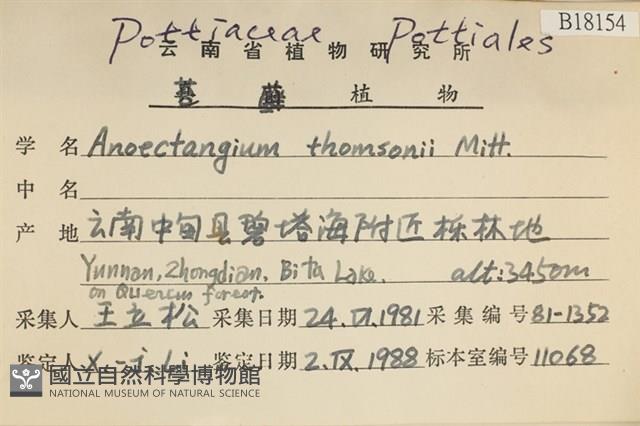 B18154
Pottiaceae Pottiales
云南省植物研究所
苔藓植物
学名 Anoectangium thomsonii Mitt.
中名
产地 云南中甸县碧塔海附近栎林地
Yunnan, Zhongdian, Bita Lake. alt: 3450m
on Quercus forest.
采集人 王立松 采集日期 24.VI.1981 采集编号 81-1352
鉴定人 X.-j. Li 鉴定日期 2.IX.1988 标本室编号 11068
國立自然科學博物館
NATIONAL MUSEUM OF NATURAL SCIENCE